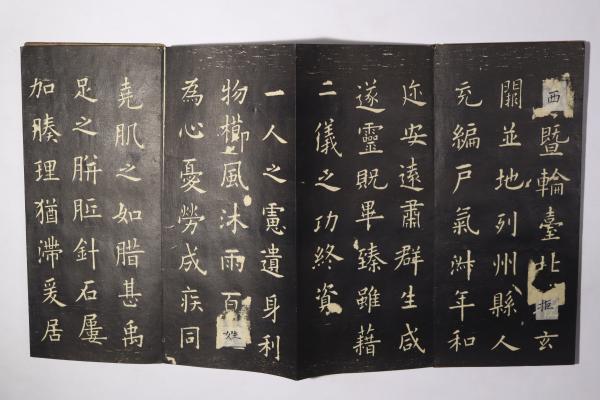 西暨輪臺北拒玄
闕並地列州縣人
充編戶氣淑年和
迩安遠肅群生咸
遂靈貺畢臻雖藉
二儀之功終資
一人之慮遺身利
物櫛風沐雨百姓
為心憂勞成疾同
堯肌之如腊甚禹
足之胼胝針石屢
加腠理猶滯爰居